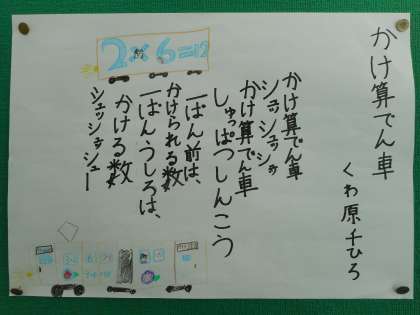 かけ算でん車
くわ原千ひろ
かけ算でん車
シュッシュッシュ
かけ算でん車
しゅっぱつしんこう
一ばん前は、
かけられる数
一ばんうしろは、
かける数
シュッシュッシュー
2×6=12